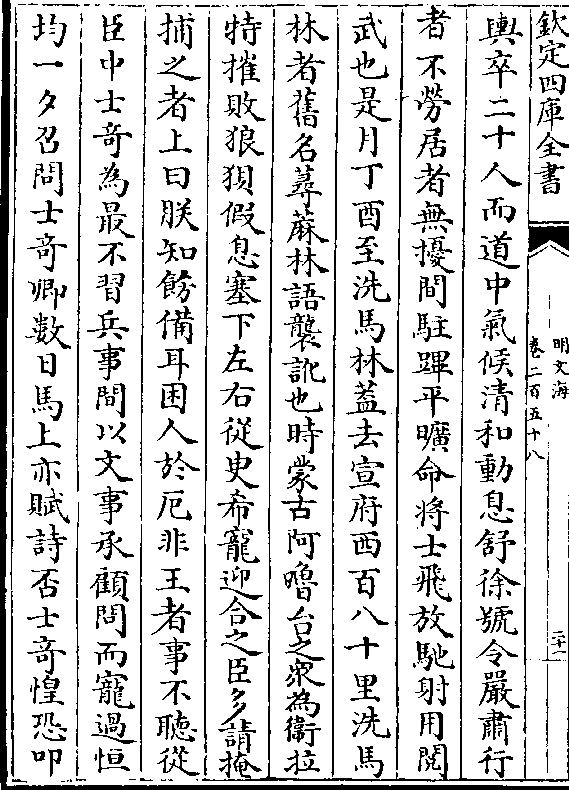 欽定四庫全書
明文海
卷二百五十八
二十一
輿卒二十人而道中氣候清和動息舒徐號令嚴肅行
者不勞居者無擾間駐蹕平曠命将士飛放馳射用閱
武也是月丁酉至洗馬林蓋去宣府西百八十里洗馬
林者舊名蕁蔴林語襲訛也時蒙古阿嚕台之衆為衛拉
特摧敗狼狽假息塞下左右從史希寵迎合之臣多請掩
捕之者上曰朕知飭備耳困人於厄非王者事不聽從
臣中士竒為最不習兵事間以文事承顧問而寵過恒
均一夕召問士竒卿數日馬上亦賦詩否士竒惶恐叩